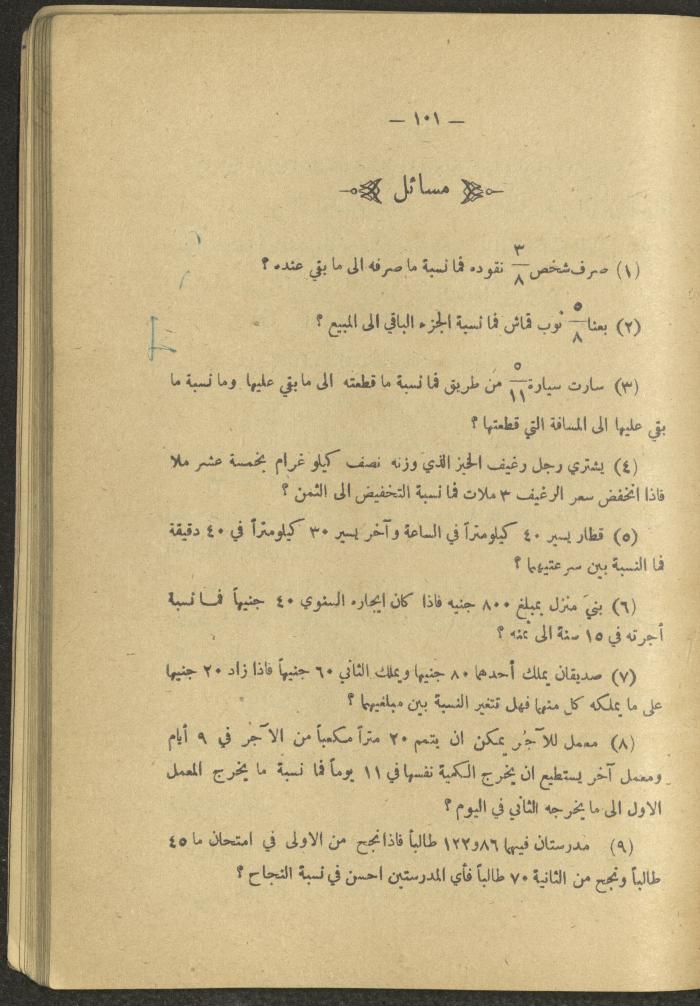 — ١٠١ —
مسائل
(١) صرف شخص ٣/٨ نقوده فما نسبة ما صرفه الى ما بقي عنده ؟
(٢) بعنا ٥/٨ ثوب قماش فما نسبة الجزء الباقي الى المبيع ؟
(٣) سارت سيارة ٥/١١ من طريق فما نسبة ما قطعته الى ما بقي عليها وما نسبة ما
بقي عليها الى المسافة التي قطعتها ؟
(٤) يشتري رجل رغيف الخبز الذي وزنه نصف كيلو غرام بخمسة عشر ملا
فاذا انخفض سعر الرغيف ٣ ملات فما نسبة التخفيض الى الثمن ؟
(٥) قطار يسير ٤٠ كيلومتراً في الساعة وآخر يسير ٣٠ كيلومتراً في ٤٠ دقيقة
فما النسبة بين سرعتيهما ؟
(٦) بني منزل بمبلغ ٨٠٠ جنيه فاذا كان ايجاره السنوي ٤٠ جنيهاً فما نسبة
أجرته في ١٥ سنة الى ثمنه ؟
(٧) صديقان يملك أحدهما ٨٠ جنيها ويملك الثاني ٦٠ جنيهاً فاذا زاد ٢٠ جنيها
على ما يملكه كل منهما فهل تتغير النسبة بين مبلغيهما ؟
(٨) معمل للآجُر يمكن ان يتمم ٢٠ متراً مكعباً من الآجر في ٩ أيام
ومعمل آخر يستطيع ان يخرج الكمية نفسها في ١١ يوماً فما نسبة ما يخرج المعمل
الاول الى ما يخرجه الثاني في اليوم ؟
(٩) مدرستان فيهما ٨٦ و١٢٢ طالباً فاذا نجح من الاولى في امتحان ما ٤٥
طالباً ونجح من الثانية ٧٠ طالباً فأي المدرستين احسن في نسبة النجاح ؟